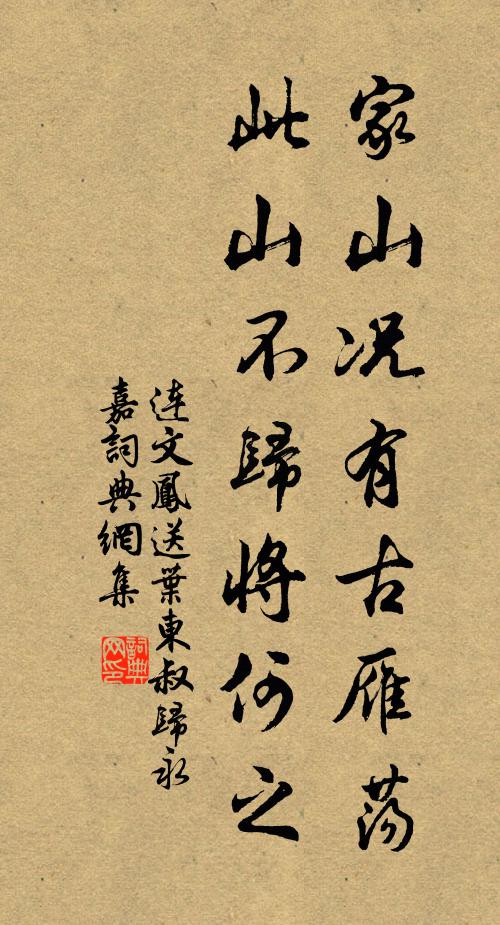 家山况有古雁荡
此山不歸將何之
連文鳳送葉東叔歸永
嘉詞典網集
詞典网印